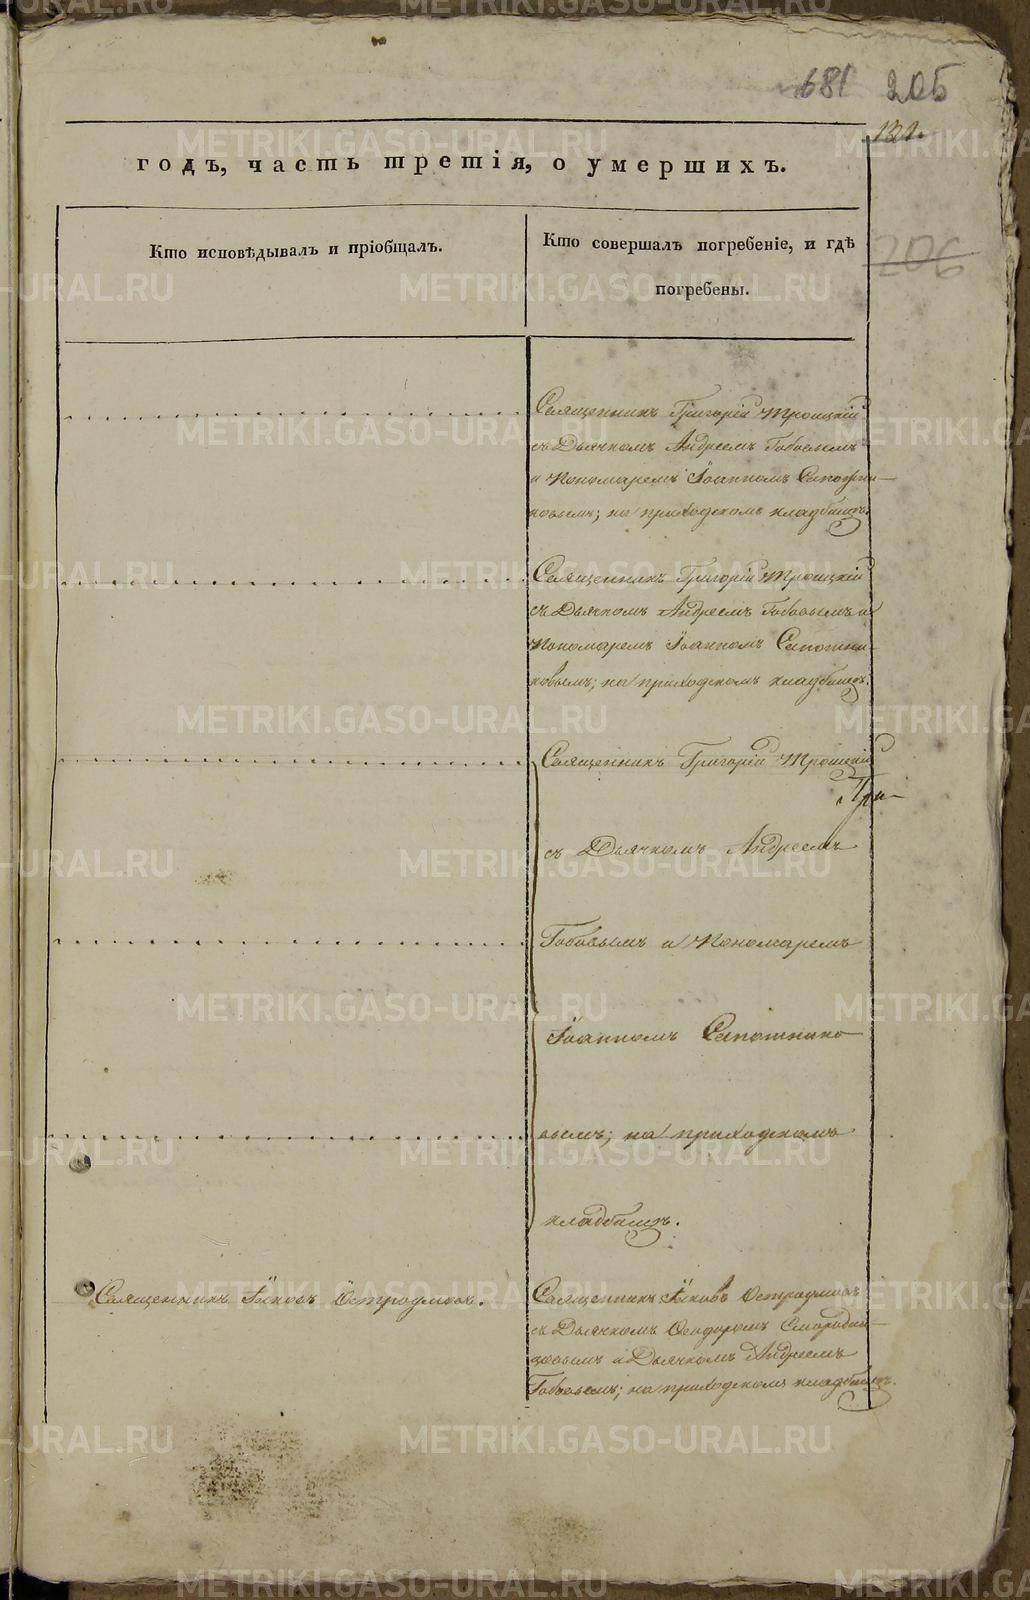 681 205
121.
годъ, часть третія, о умершихъ.
206
Кто исповѣдывалъ и пріобщалъ.
Кто совершалъ погребеніе, и гдѣ
погребены.
Священникъ Григорій Троицкій
съ Дьячкомъ Андреемъ Бобовымъ
и Пономаремъ Іоанномъ Сапожни-
ковымъ; на приходскомъ кладбищѣ.
Священникъ Григорій Троицкій
съ Дьячкомъ Андреемъ Бобовымъ и
Пономаремъ Іоанномъ Сапожни-
ковымъ; на приходскомъ кладбищѣ.
Священникъ Григорій Троицкій
съ Дьячкомъ Андреемъ
Бобовымъ и Пономаремъ
Іоанномъ Сапожнико
вымъ; на приходскомъ
кладбищѣ.
Священникъ Іаковъ Остроумовъ.
Священникъ Іаковъ Остроумовъ
съ Дьячкомъ Ѳеодоромъ Смородин-
цовымъ и Дьячкомъ Андреемъ
Бобовымъ; на приходскомъ кладбищѣ.
METRIKI.GASO-URAL.RU